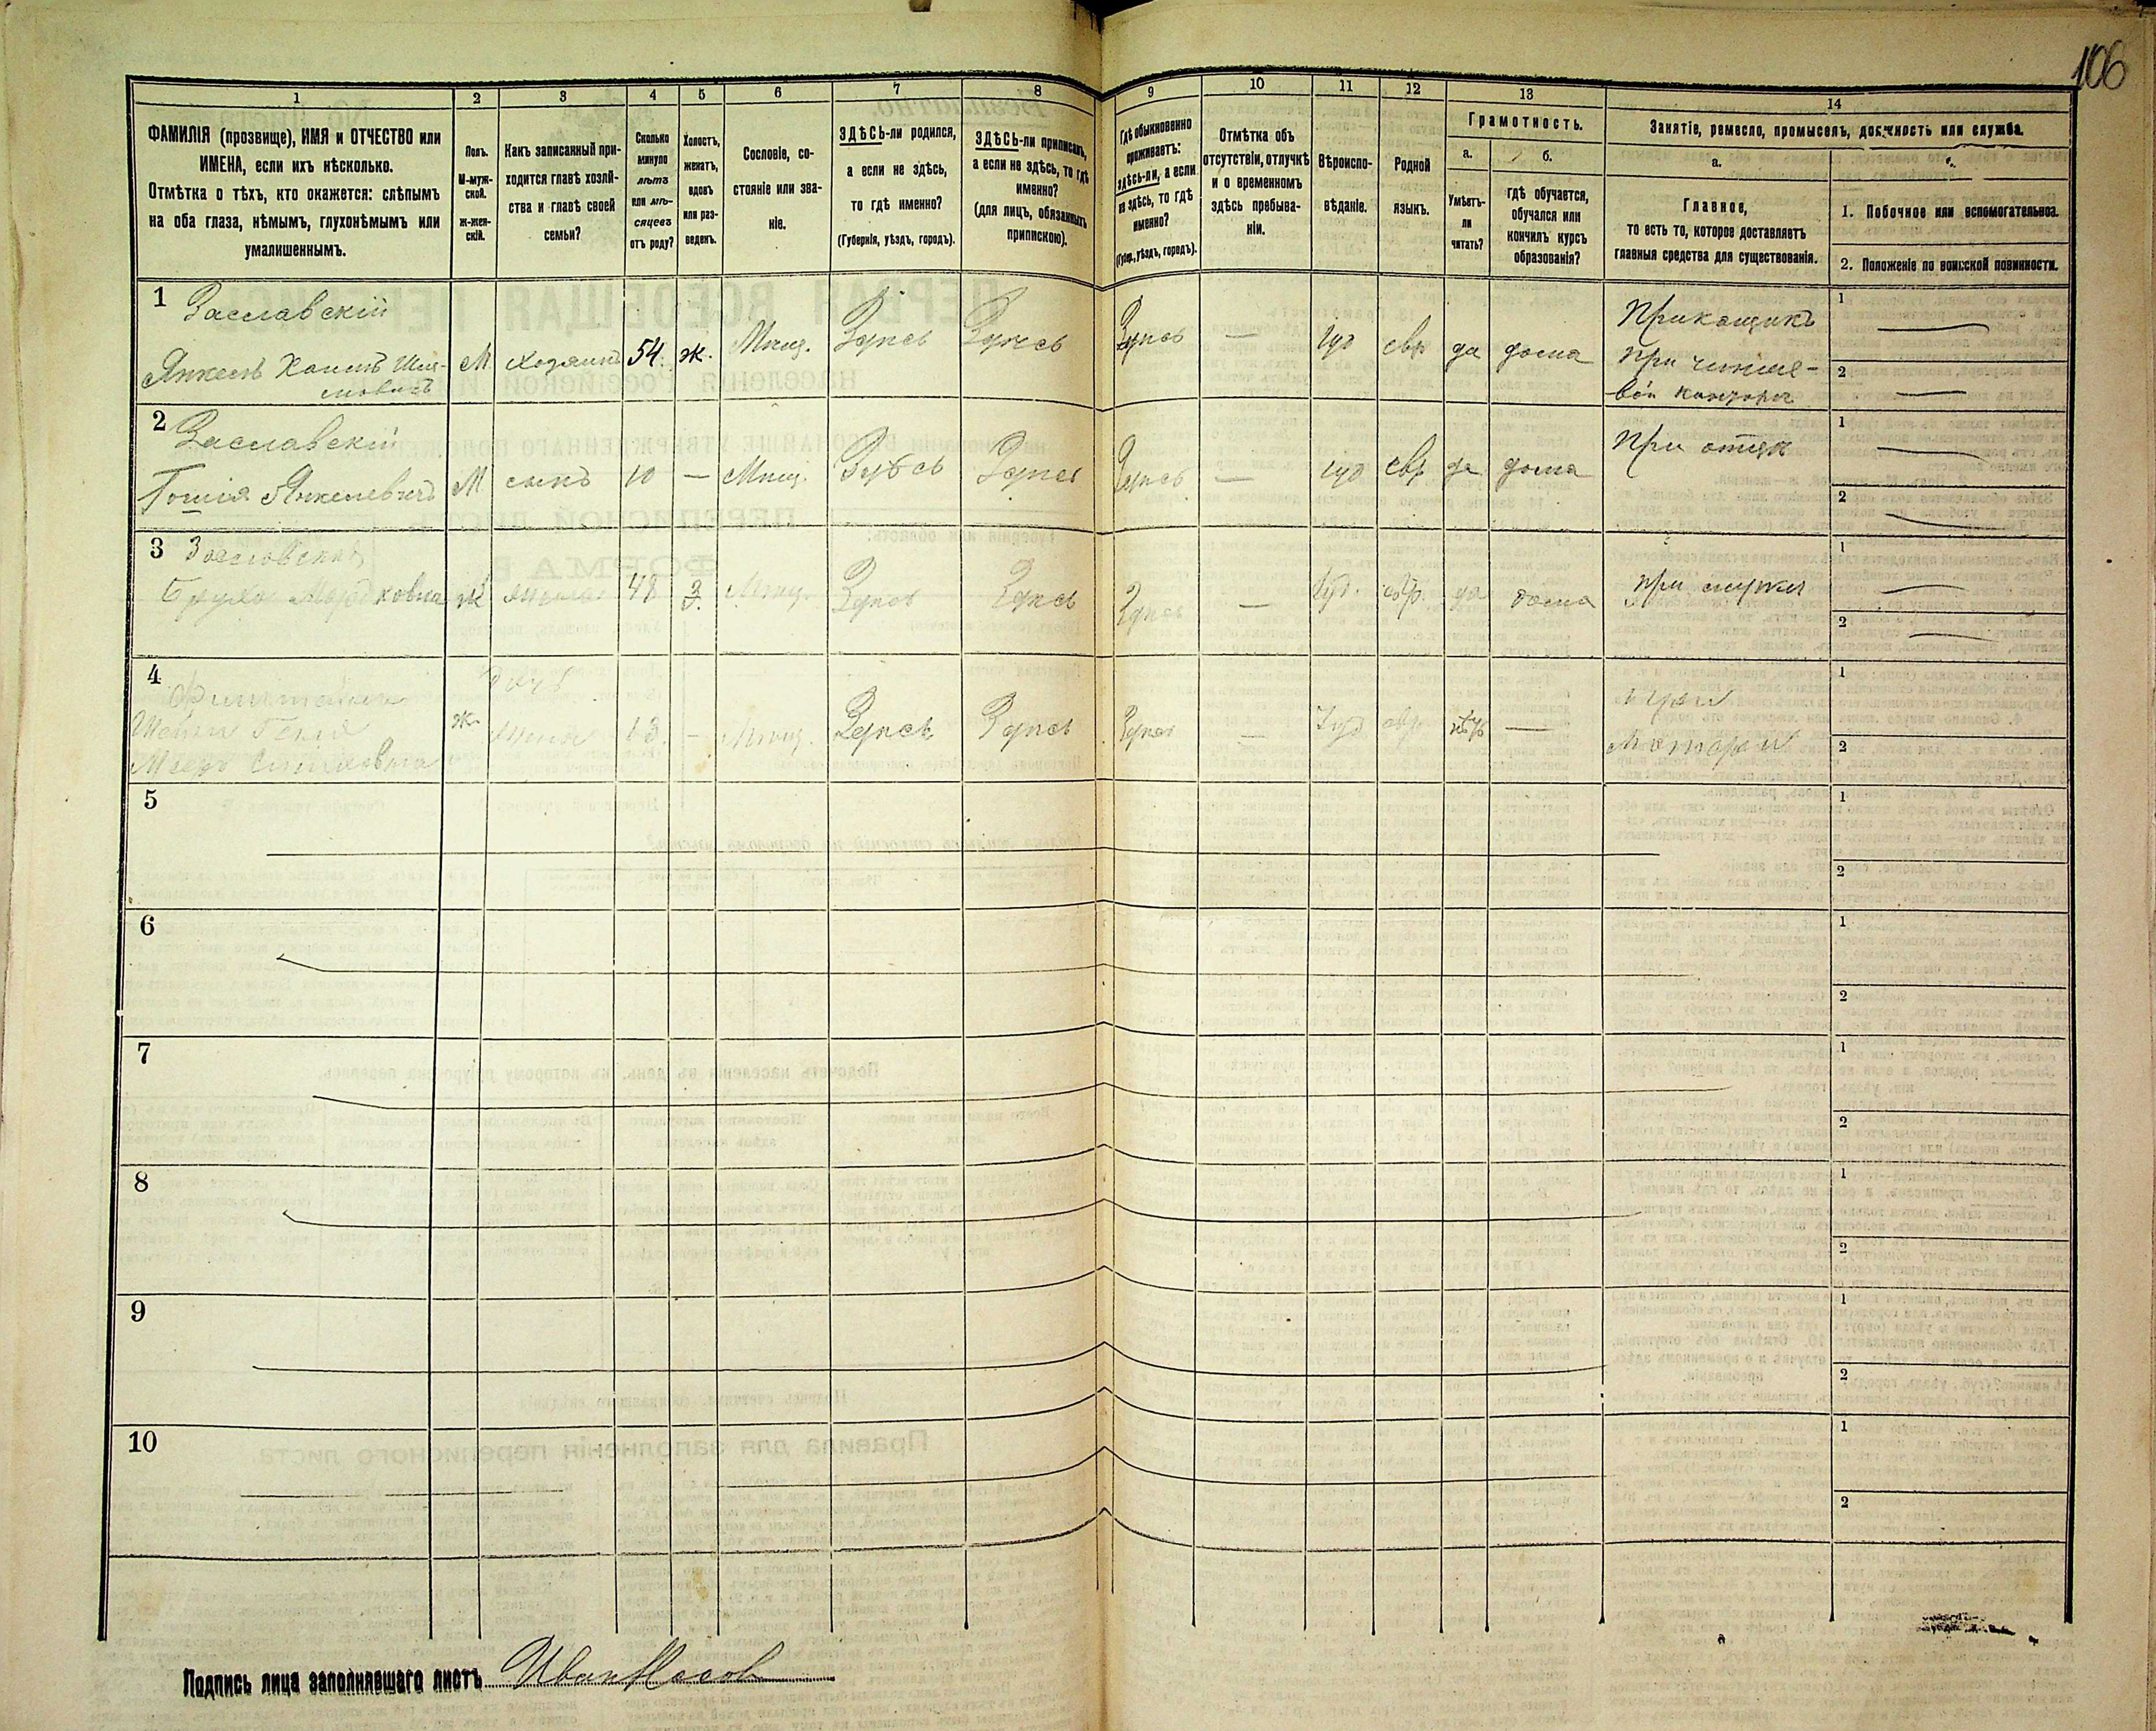 106
1 2 3 4 5 6 7 8 9 10 11 12 13 14
ФАМИЛІЯ (прозвище), ИМЯ и ОТЧЕСТВО или
ИМЕНА, если ихъ нѣсколько.
Отмѣтка о тѣхъ, кто окажется: слѣпымъ
на оба глаза, нѣмымъ, глухонѣмымъ или
умалишеннымъ.
Полъ.
М-муж-
ской.
ж-жен-
скій.
Какъ записанный при-
ходится главѣ хозяй-
ства и главѣ своей
семьи?
Сколько
минуло
лѣтъ
или мѣ-
сяцевъ
отъ роду?
Холостъ,
женатъ,
вдовъ
или раз-
веденъ.
Сословіе, со-
стояніе или зва-
ніе.
ЗДѢСЬ-ли родился,
а если не здѣсь,
то гдѣ именно?
(Губернія, уѣздъ, городъ).
ЗДѢСЬ-ли приписанъ,
а если не здѣсь, то гдѣ
именно?
(для лицъ, обязанныхъ
припискою).
Гдѣ обыкновенно
проживаетъ:
здѣсь-ли, а если
не здѣсь, то гдѣ
именно?
(Губер., уѣздъ, городъ).
Отмѣтка объ
отсутствіи, отлучкѣ
и о временномъ
здѣсь пребыва-
ніи.
Вѣроиспо-
вѣданіе.
Родной
языкъ.
Грамотность.
а.
Умѣетъ-
ли
читать?
б.
гдѣ обучается,
обучался или
кончилъ курсъ
образованія?
Занятіе, ремесло, промыселъ, должность или служба.
а.
Главное,
то есть то, которое доставляетъ
главныя средства для существованія.
1. Побочное или вспомогательное.
2. Положеніе по воинской повинности.
1 Заславскій
Янкель Хаимъ Шле-
мовичъ
М хозяинъ 54 ж. Мѣщ. Здѣсь Здѣсь Здѣсь — Іуд евр да дома
Прикащикъ
при
вой конторѣ
1 —
2 —
2 Заславскій
Янкелевичъ
М сынъ 10 — Мѣщ. Здѣсь Здѣсь Здѣсь — іуд евр да дома
При отцѣ
1 —
2 —
3
ковна
ж жена 48 З. Мѣщ. Здѣсь Здѣсь Здѣсь — Іуд. евр. да дома
при мужѣ
1 —
2 —
4
ж. 13 — Мѣщ. Здѣсь Здѣсь Здѣсь — Іуд евр. —
при
матери
1
2
5
1
2
6
1
2
7
1
2
8
1
2
9
1
2
10
1
2
Подпись лица заполнявшаго листъ Иван